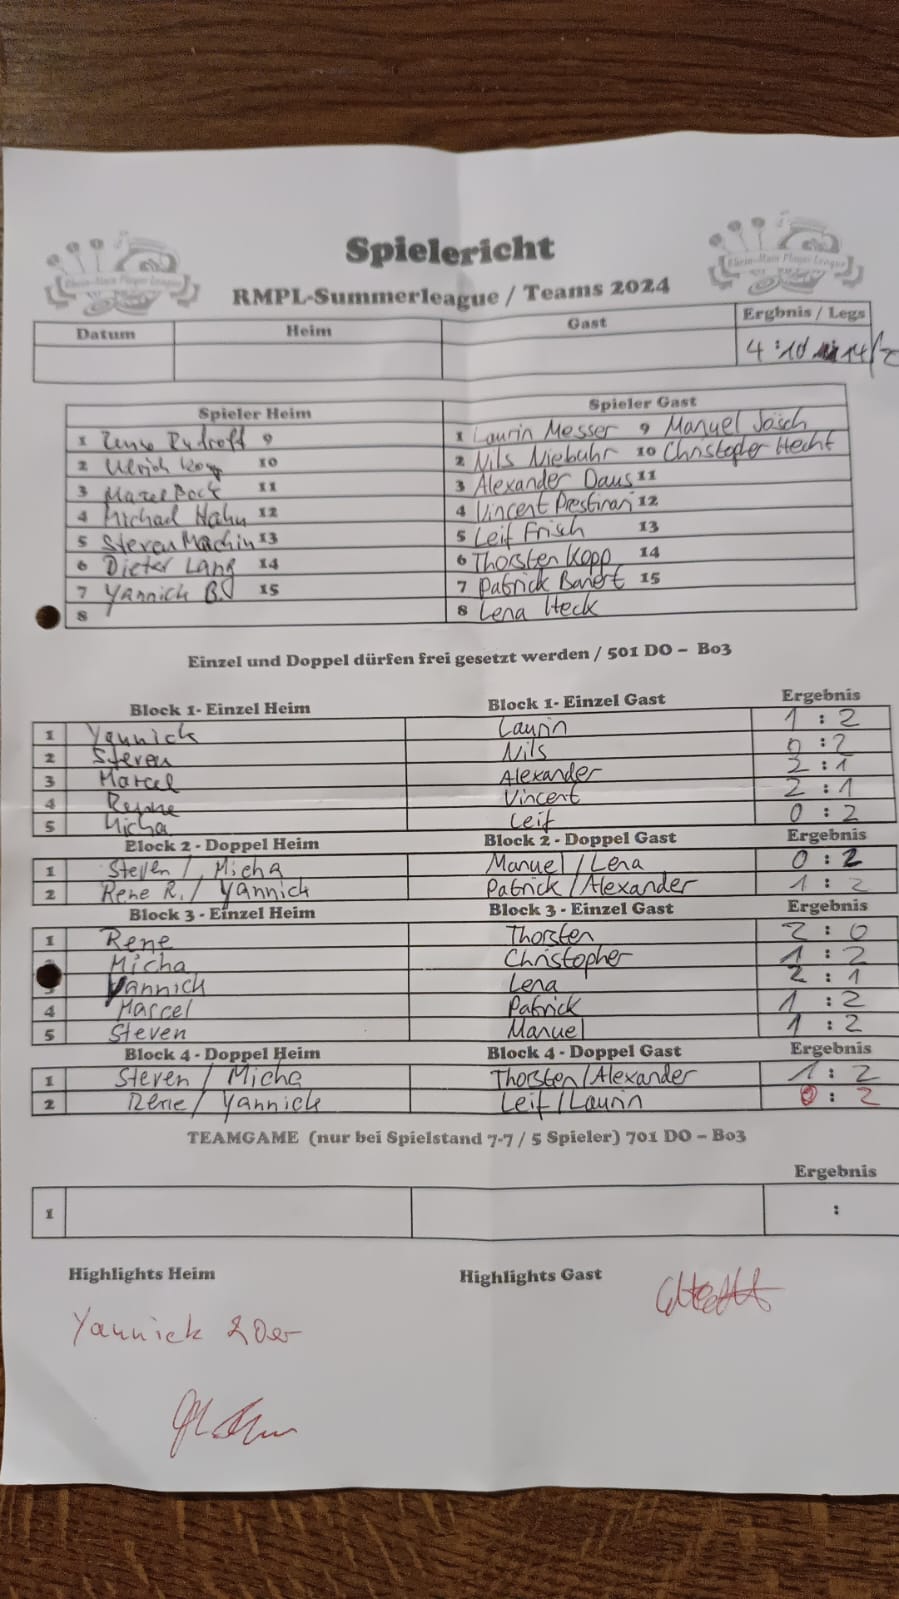 Rhein-Main Player League Rhein-Main Player League
Spielericht
RMPL-Summerleague / Teams 2024
Datum Heim Gast Ergbnis / Legs
4 : 10
Spieler Heim Spieler Gast
1 9 1 Laurin Messer 9 Manuel Jäsch
2 Ulrich 10 2 Nils Niebuhr 10 Christopher Hecht
3 Marcel Bock 11 3 Alexander Daus 11
4 Michael Hahn 12 4 Vincent 12
5 Steven Machin 13 5 Leif Frisch 13
6 Dieter Lang 14 6 Thorsten Kopp 14
7 Yannick B. 15 7 Patrick Banert 15
8 8 Lena Heck
Einzel und Doppel dürfen frei gesetzt werden / 501 DO – Bo3
Block 1- Einzel Heim Block 1- Einzel Gast Ergebnis
1 Yannick Laurin 1 : 2
2 Steven Nils 0 : 2
3 Marcel Alexander 2 : 1
4 Vincent 2 : 1
5 Micha Leif 0 : 2
Block 2 - Doppel Heim Block 2 - Doppel Gast Ergebnis
1 Steven / Micha Manuel / Lena 0 : 2
2 Rene R. / Yannich Patrick / Alexander 1 : 2
Block 3 - Einzel Heim Block 3 - Einzel Gast Ergebnis
1 Rene Thorsten 2 : 0
Micha Christopher 1 : 2
3 Yannich Lena 2 : 1
4 Marcel Patrick 1 : 2
5 Steven Manuel 1 : 2
Block 4 - Doppel Heim Block 4 - Doppel Gast Ergebnis
1 Steven / Micha Thorsten / Alexander 1 : 2
2 Rene / Yannick Leif / Laurin 0 : 2
TEAMGAME (nur bei Spielstand 7-7 / 5 Spieler) 701 DO – Bo3
Ergebnis
1 :
Highlights Heim Highlights Gast
Yannick 20er